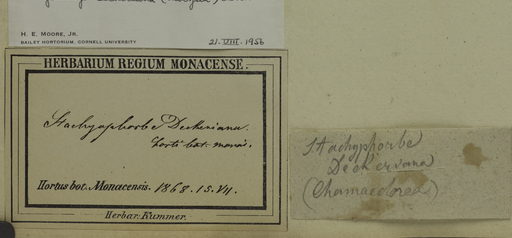 H. E. MOORE, JR.
BAILEY HORTORIUM, CORNELL UNIVERSITY
21-VIII-1956
HERBARIUM REGIUM MONACENSE.
Stachyophorbe Deckeriana.
horti bot. monac.
Hortus bot. Monacensis. 1868. 15. VII.
Herbar. Kummer.
Stachyphorbe
Deckeriana
(Chamaedorea)